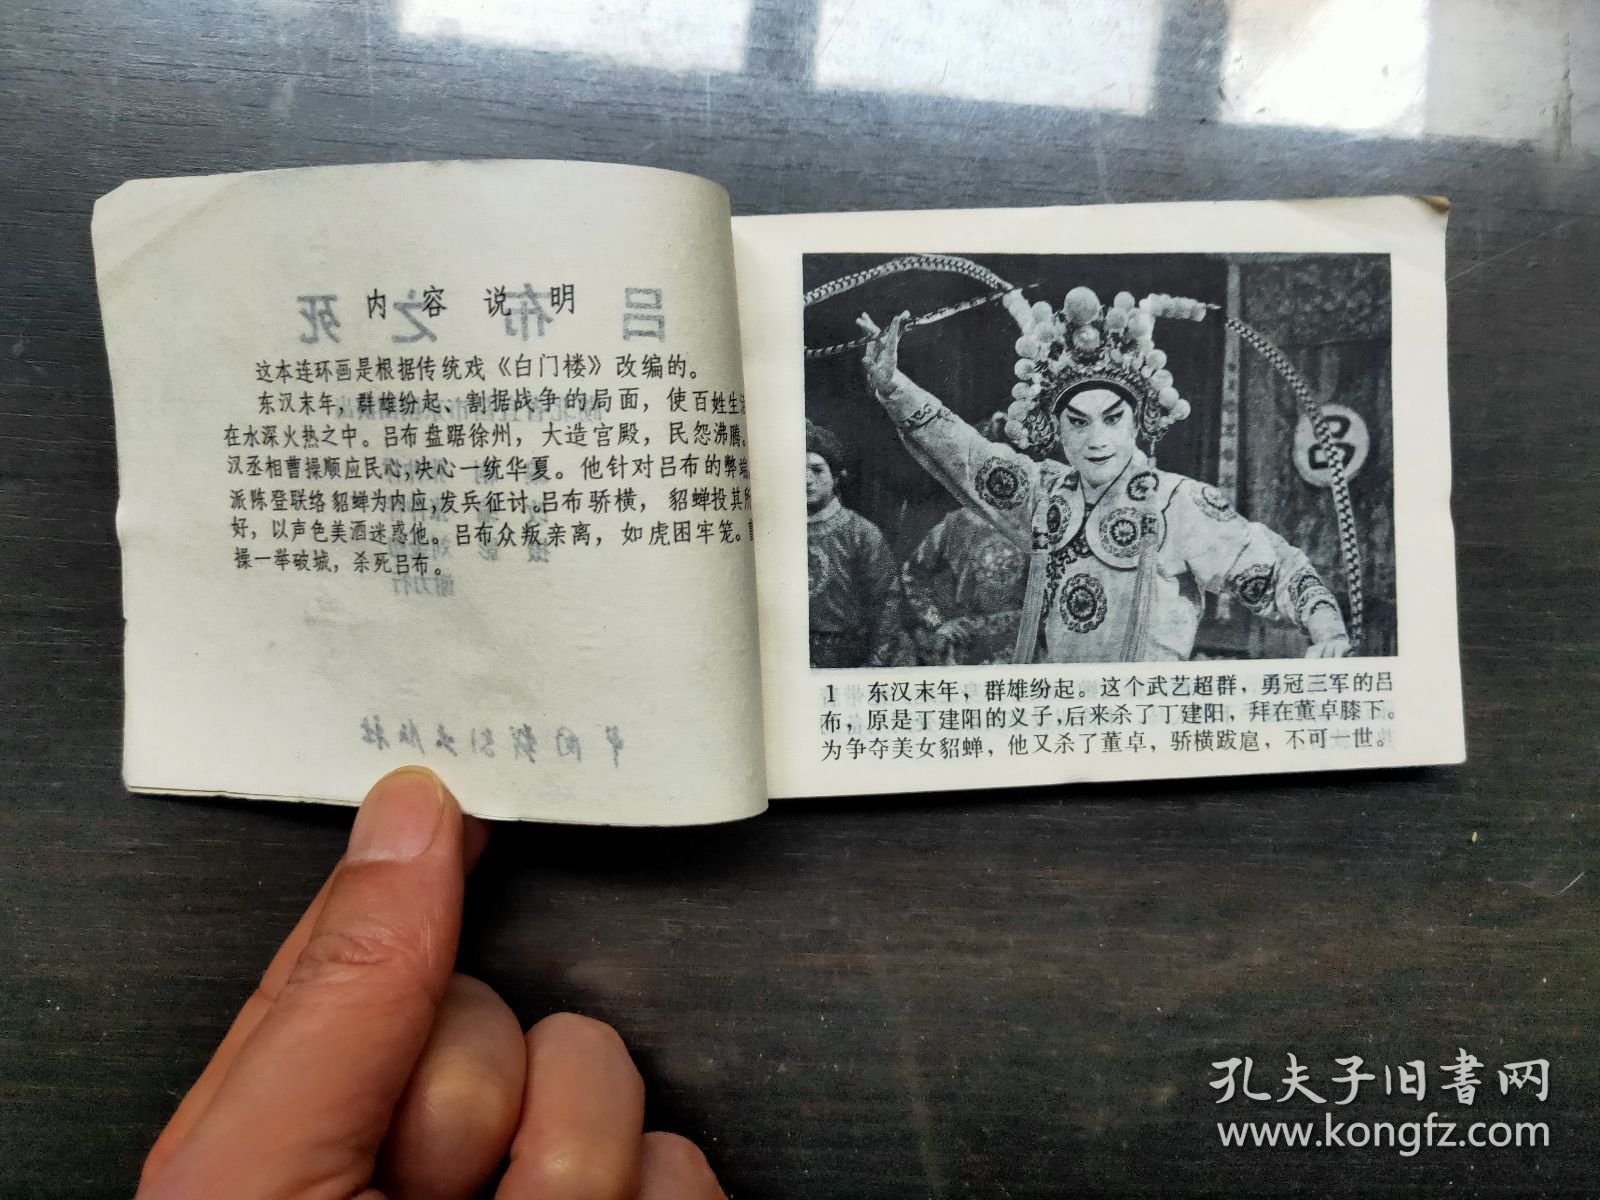 内容说明
这本连环画是根据传统戏《白门楼》改编的。
东汉末年，群雄纷起、割据战争的局面，使百姓生活
在水深火热之中。吕布盘踞徐州，大造宫殿，民怨沸腾。
汉丞相曹操顺应民心，决心一统华夏。他针对吕布的弊端
派陈登联络貂蝉为内应，发兵征讨。吕布骄横，貂蝉投其所
好，以声色美酒迷惑他。吕布众叛亲离，如虎困牢笼。曹
操一举破城，杀死吕布。
吕布之死
中国戏剧出版社
吕
1 东汉末年，群雄纷起。这个武艺超群，勇冠三军的吕
布，原是丁建阳的义子，后来杀了丁建阳，拜在董卓膝下。
为争夺美女貂蝉，他又杀了董卓，骄横跋扈，不可一世。
孔夫子旧書网
www.kongfz.com